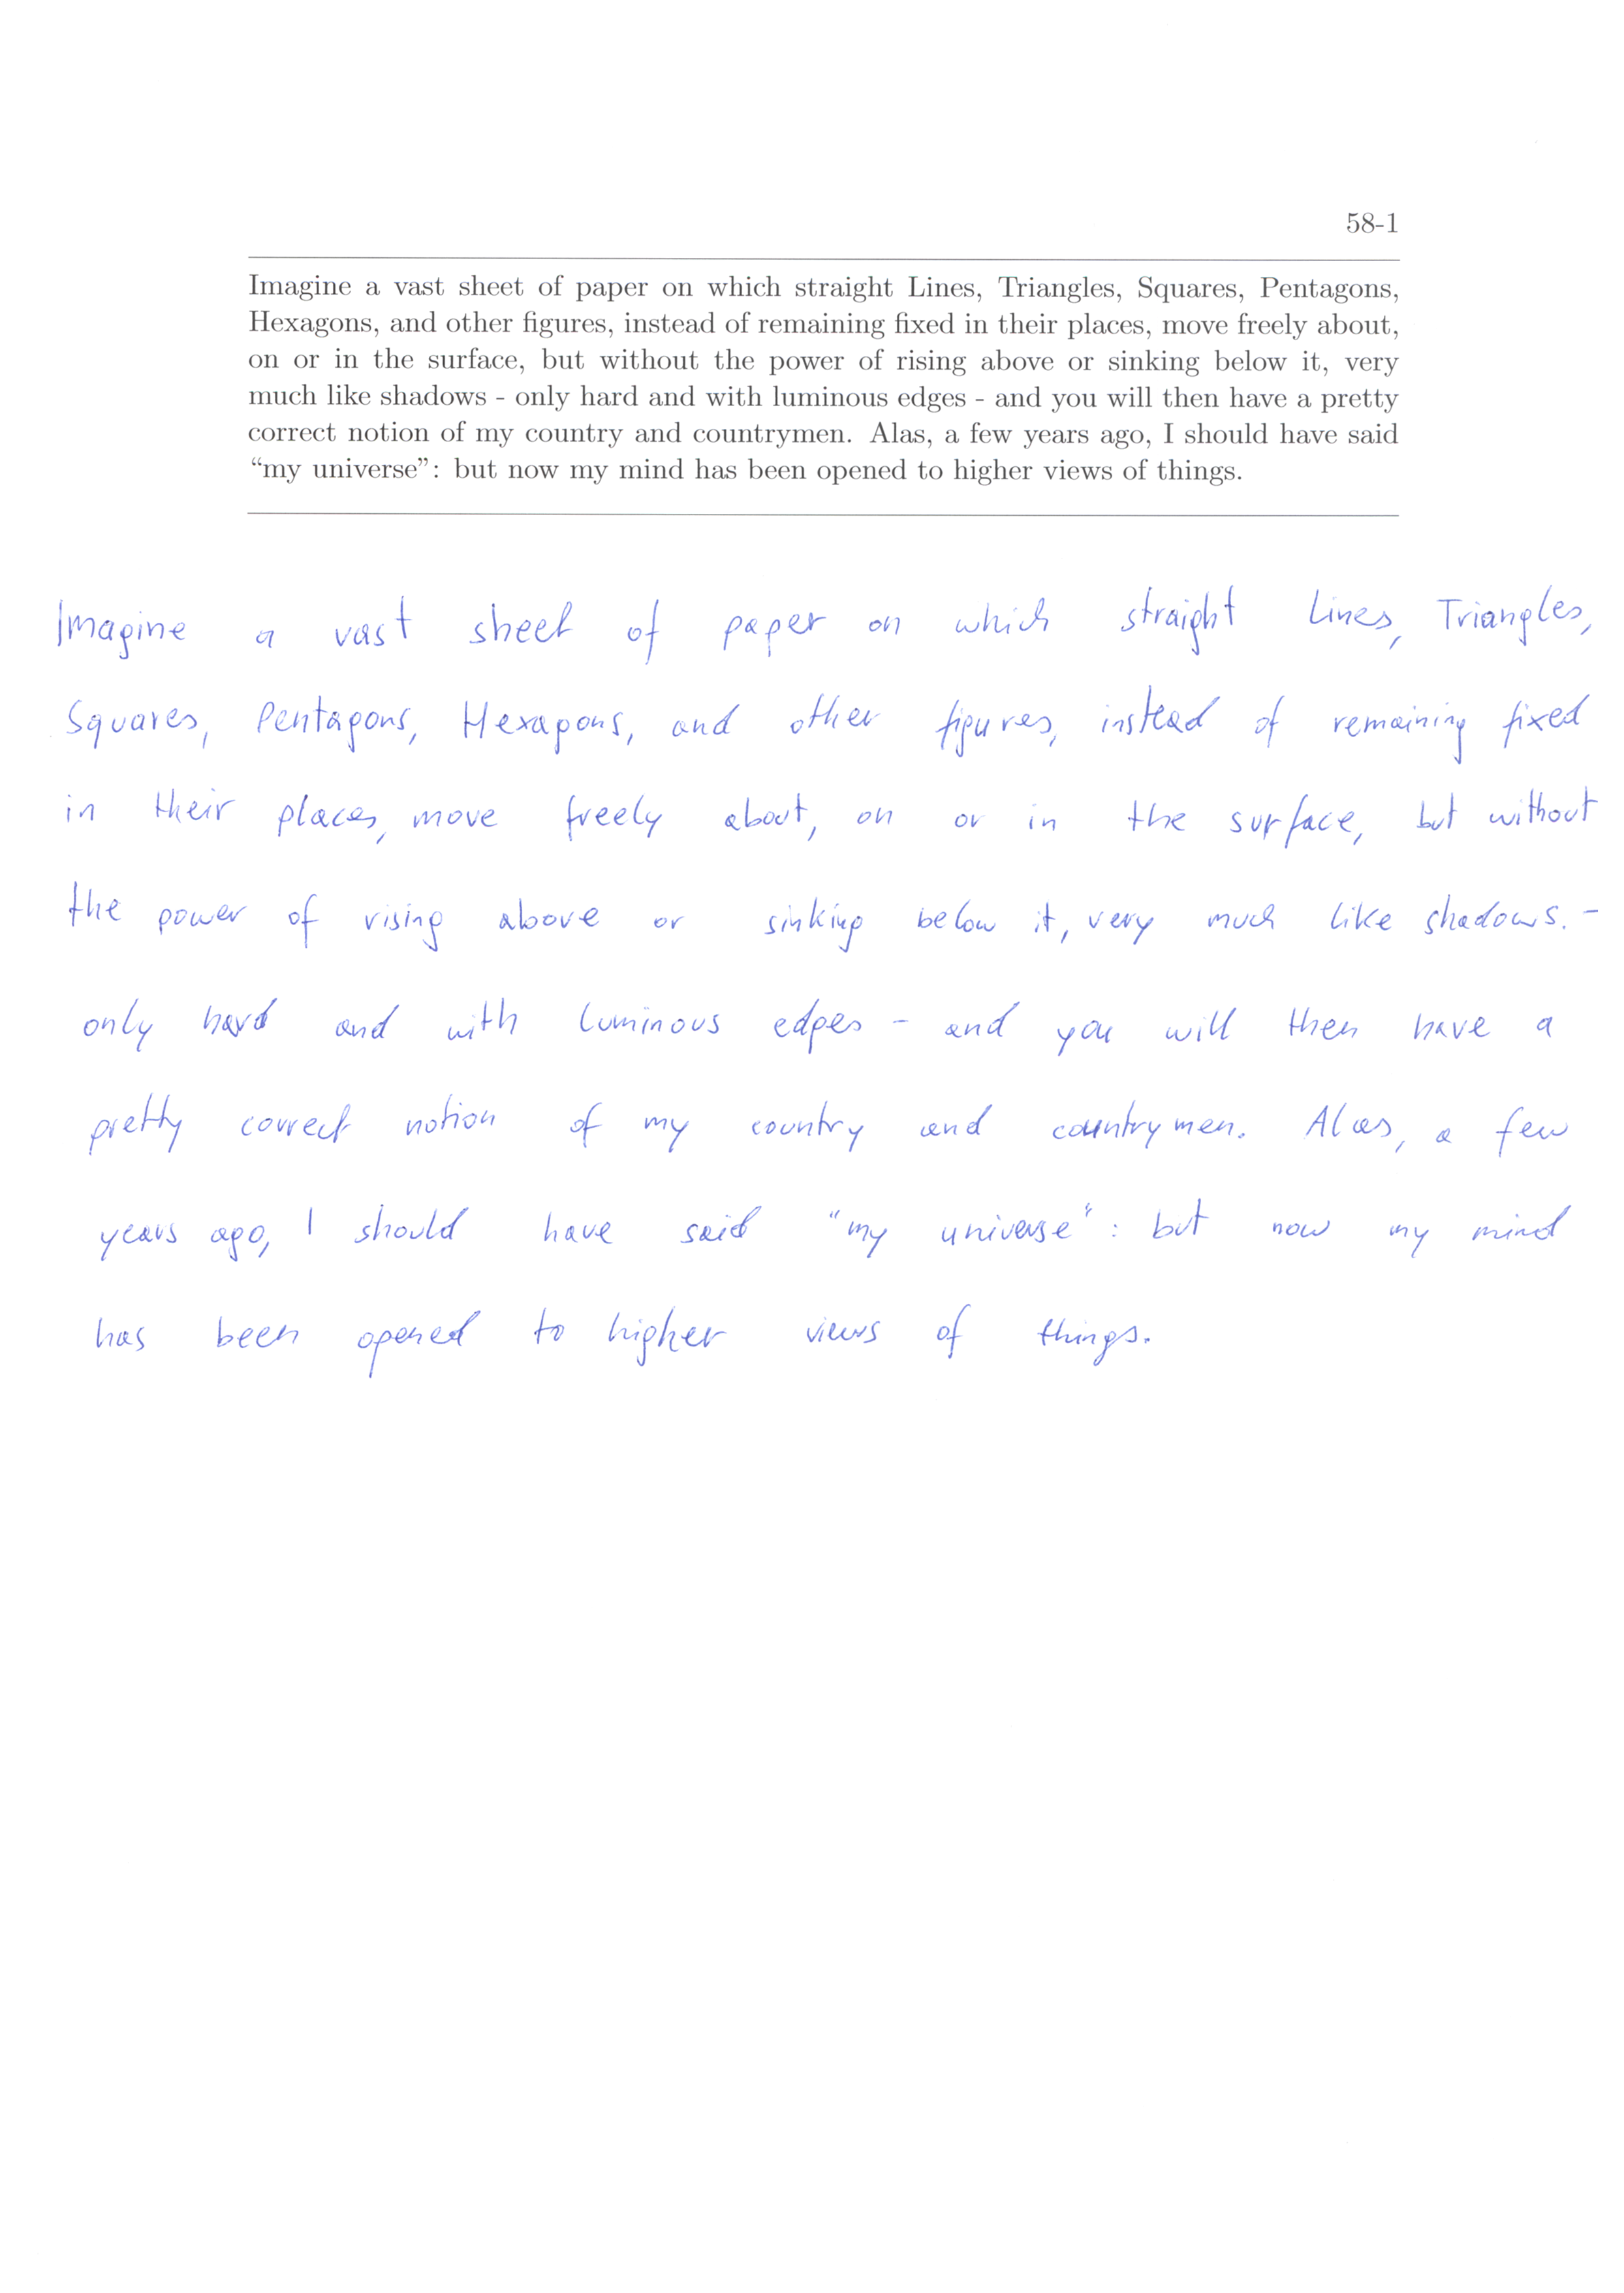 58-1
Imagine a vast sheet of paper on which straight Lines, Triangles, Squares, Pentagons,
Hexagons, and other figures, instead of remaining fixed in their places, move freely about,
on or in the surface, but without the power of rising above or sinking below it, very
much like shadows - only hard and with luminous edges - and you will then have a pretty
correct notion of my country and countrymen. Alas, a few years ago, I should have said
“my universe”: but now my mind has been opened to higher views of things.
Imagine a vast sheet of paper on which straight Lines, Triangles,
Squares, Pentagons, Hexagons, and other figures, instead of remaining fixed
in their places, move freely about, on or in the surface, but without
the power of rising above or sinking below it, very much like shadows. -
only hard and with luminous edges - and you will then have a
pretty correct notion of my country and countrymen. Alas, a few
years ago, I should have said "my universe": but now my mind
has been opened to higher views of things.